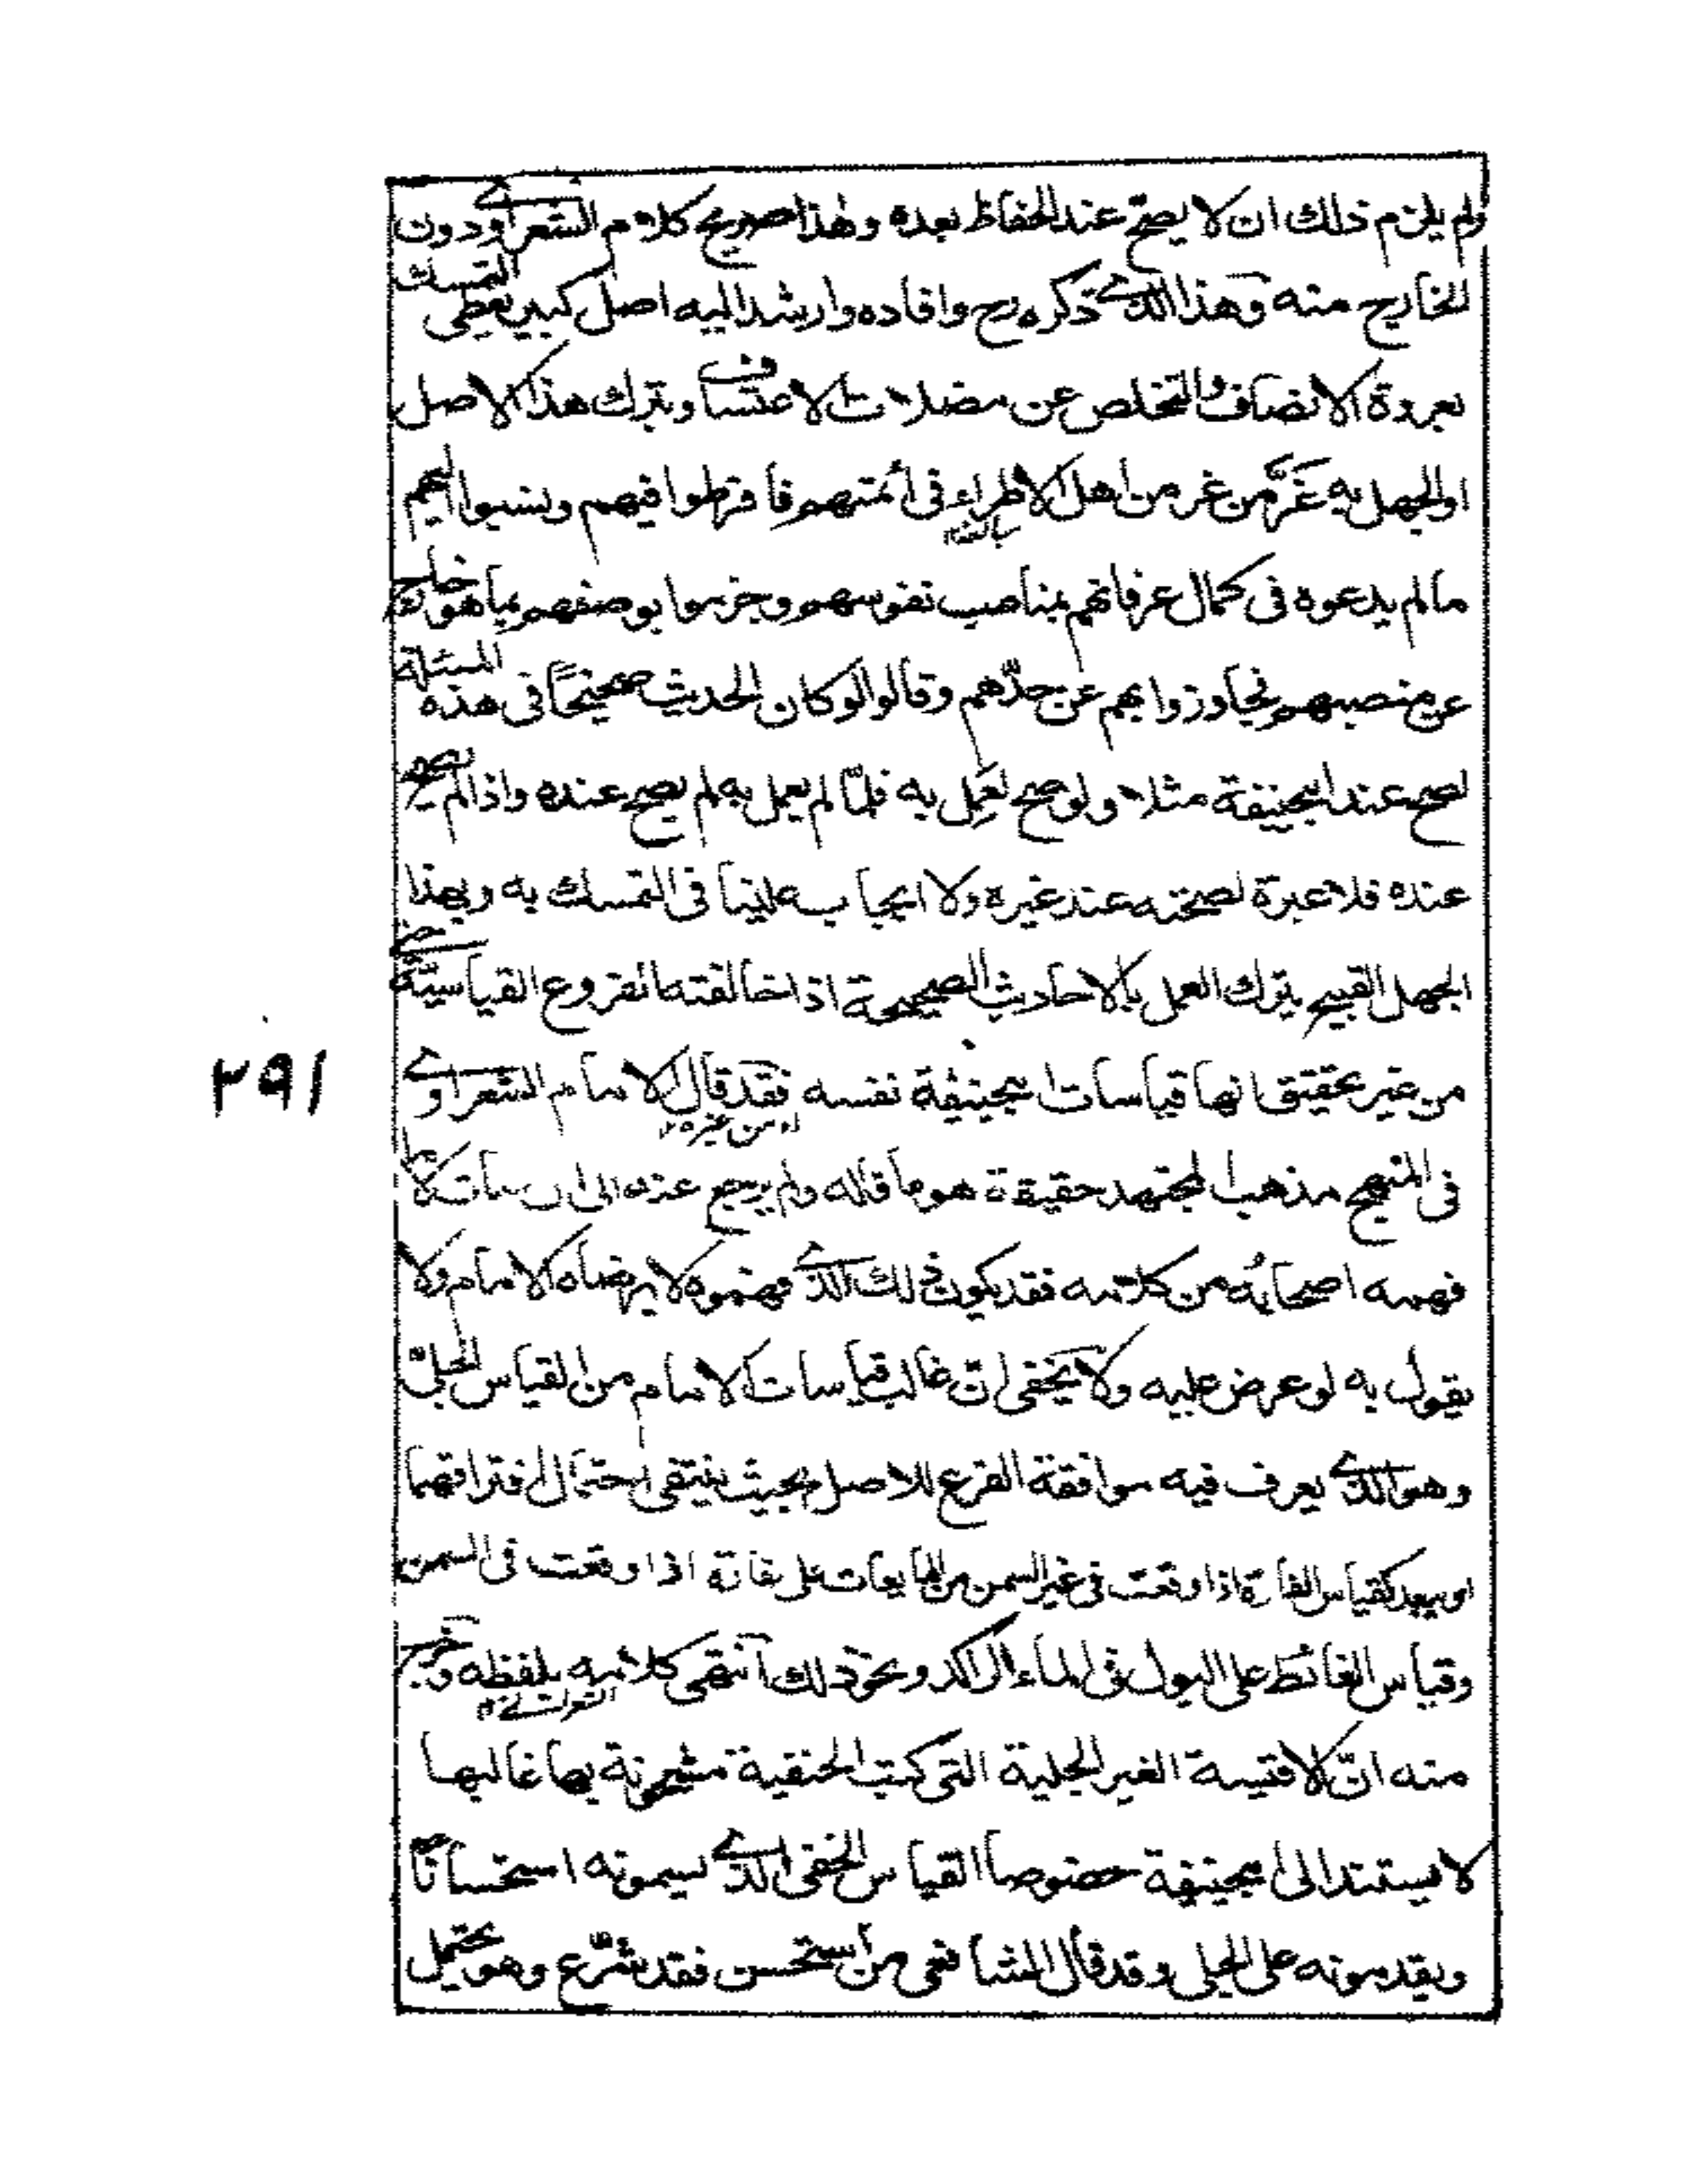 ولم يلزم ذلك ان لا يصحّ عند الحفاظ بعده وهذا صريح كلام الشعراوي دون
الخارج منه وهذا الذي ذكره رح وافاده وارشد اليه اصل كبير يعطي التمسك
بعروة الانصاف والتخلص عن مضلات الاعتساف وبترك هذا الاصل
او الجهل به غَرَّ من غر من اهل الاطراء في أئمتهم فافرطوا فيهم ونسبوا اليهم
بالغة
ما لم يدعوه في كمال عرفانهم بمناصب نفوسهم وجزموا بوصفهم بما هو خارج
عن منصبهم فجاوزوا بهم عن حدّهم وقالوا لو كان الحديث صحيحًا في هذه المسئلة
لصح عند ابيحنيفة مثلا ولو صح لعَمِل به فلمّا لم يعمل به لم يصح عنده واذا لم يصح
عنده فلا عبرة لصحته عند غيره ولا ايجاب علينا في التمسك به وبهذا
الجهل القبيح يترك العمل بالاحاديث الصحيحة اذا خالفته الفروع القياسيّة
من غير تحقيق انها قياسات ابيحنيفة نفسه فقد قال الامام الشعراوي
او من غيره
في المنهج مذهب المجتهد حقيقة هو ما قاله ولم يرجع عنه الى ان مات لا ما
فهمه اصحابُه من كلامه فقد يكون ذلك الذي فهموه لا يرضاه الامام ولا
يقول به لو عرض عليه ولا يخفى انّ غالب قياسات الامام من القياس الجليّ
وهو الذي يعرف فيه موافقة الفرع للاصل بحيث ينتفى احتمال افتراقهما
او يبعد كقياس الفارة اذا وقعت في غير السمن من المايعات على فارة اذا وقعت في السمن
وقياس الغائط على البول في الماء الراكد ونحو ذلك انتهى كلامه بلفظه وخرج
منه انّ الاقيسة الغير الجلية التي كتب الحنفية مشحونة بها غالبها
لا يستند الى ابيحنيفة خصوصا القياس الخفى الذي يسمونه استحسانًا
ويقدمونه على الجلي وقد قال الشافعى من استحسن فقد شرّع وهو يحتمل
٢٩١